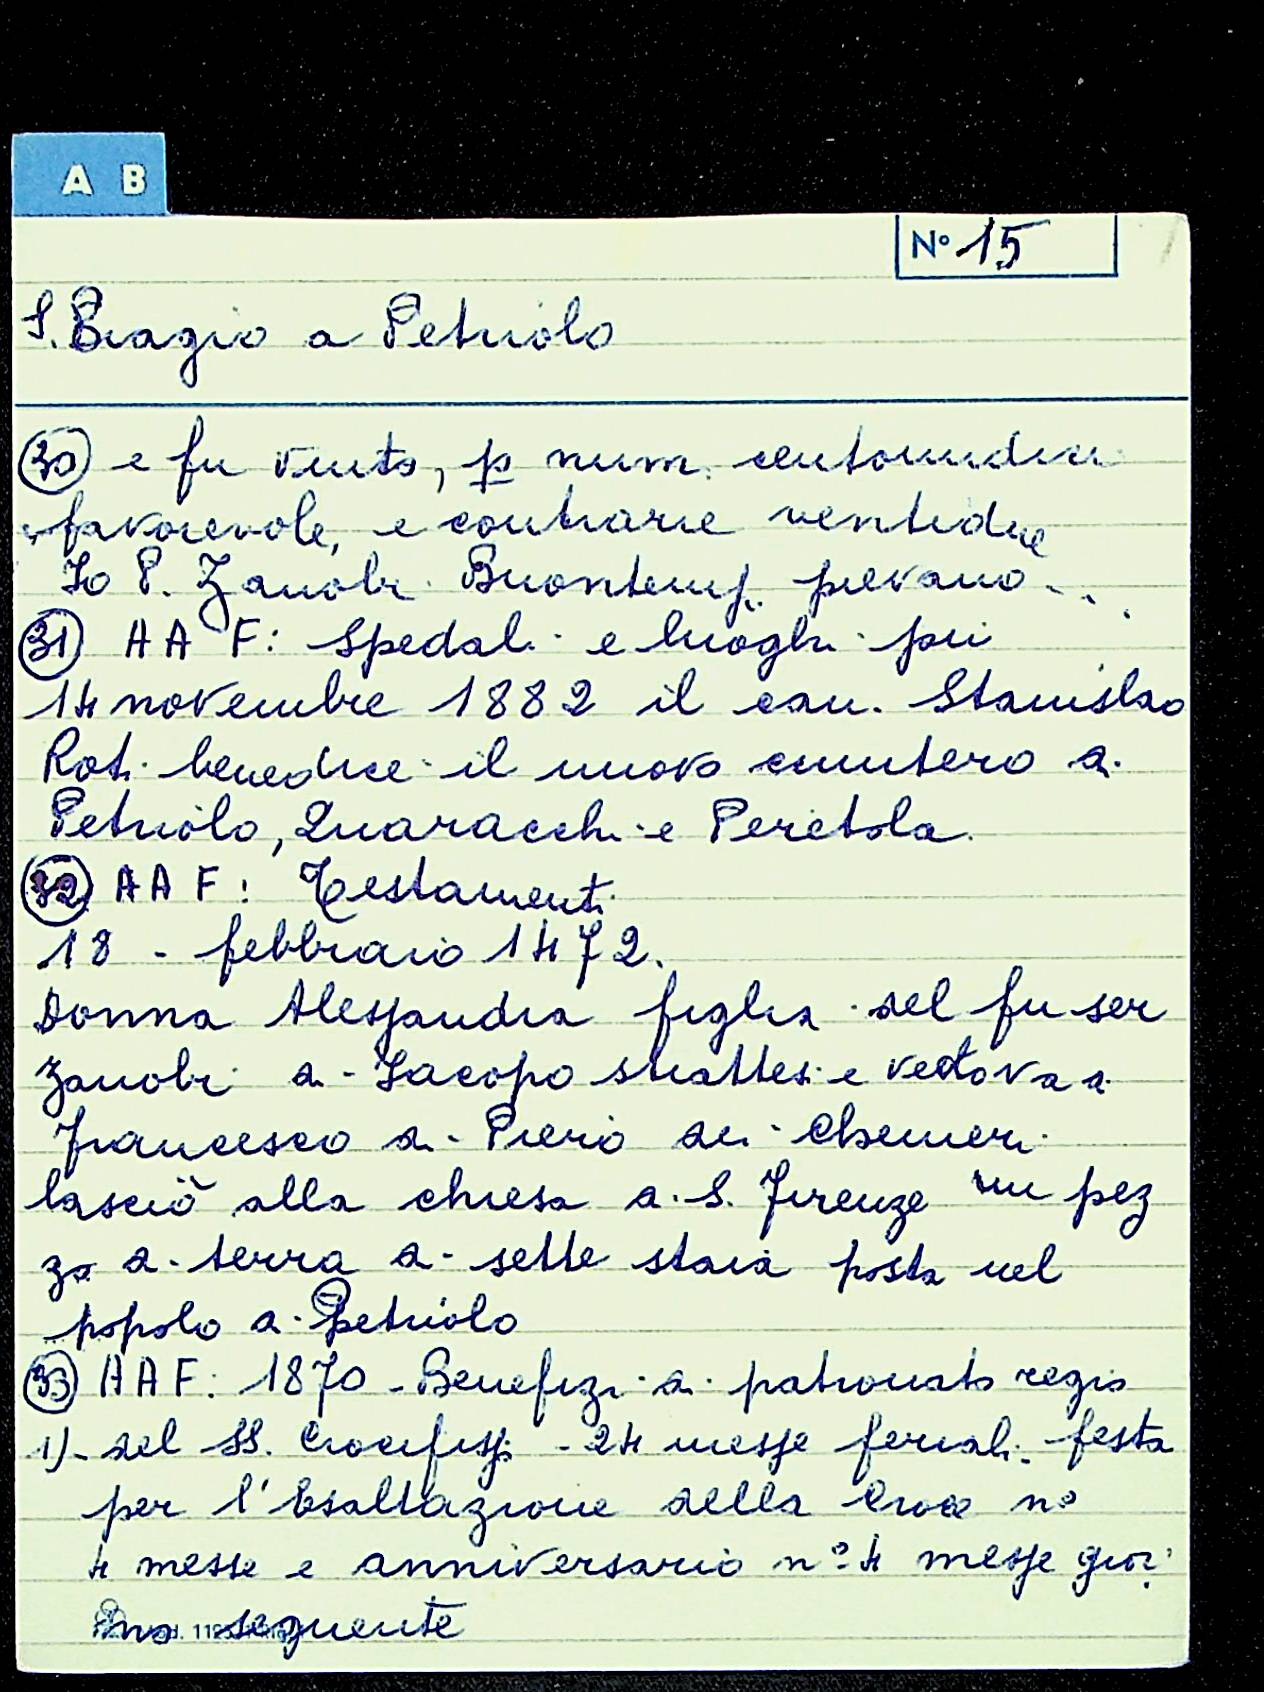 A B
N° 15
S. Biagio a Petriolo
30 e fu vinto, p num. centoundici
favorevole, e contrarie ventidue
Io P. Zanobi Buontemp. pievano...
31 AAF: Spedali e luoghi pii
14 novembre 1882 il can. Stanislao
Roti benedice il nuovo cimitero di
Petriolo, Quaracchi e Peretola.
32 AAF: Testamenti
18 - febbraio 1472.
Donna Alessandra figlia del fu ser
Zanobi di Iacopo e vedova di
Francesco di Piero dei
lasciò alla chiesa di S. Firenze un pez
zo di terra di sette staia posta nel
popolo di Petriolo
33 AAF: 1870 - Benefizi di patronato regio
1) - del SS. Crocifisso - 24 messe feriali. festa
per l'Esaltazione della Croce n°
4 messe e anniversario n° 4 messe gior
no seguente